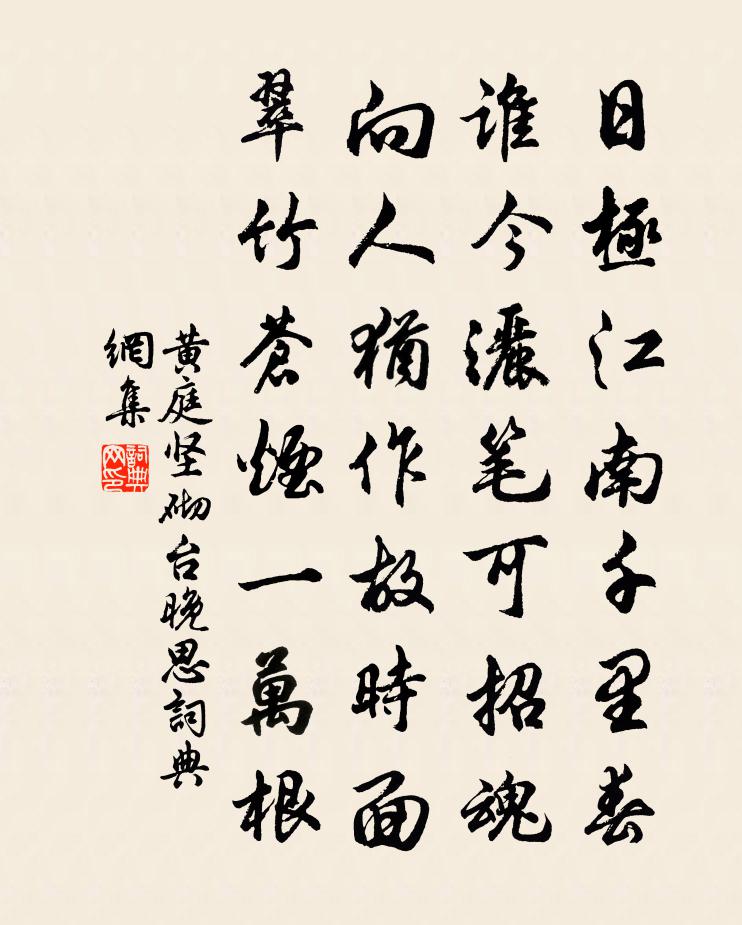 日極江南千里春
誰今灑笔可招魂
向人猶作故時面
翠竹蒼煙一萬根
黄庭坚砌台晚思詞典
網集
詞典
网印